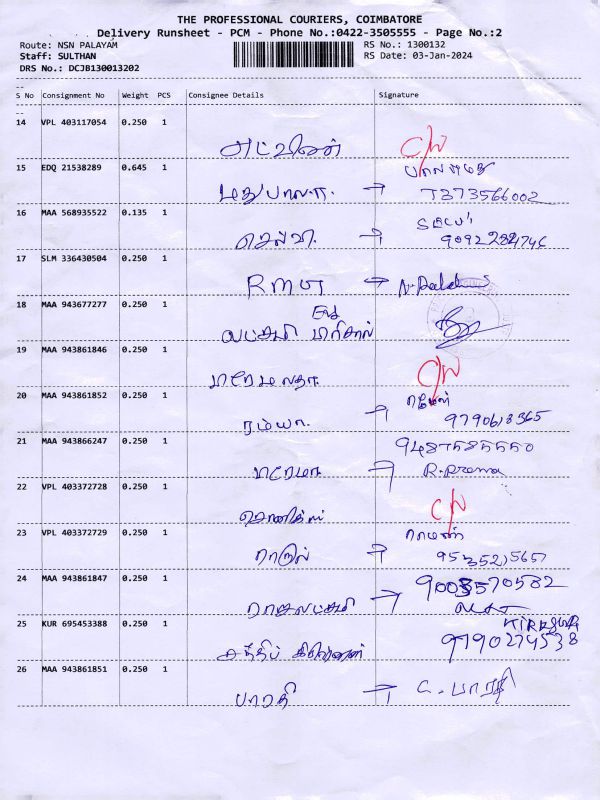 THE PROFESSIONAL COURIERS, COIMBATORE
Delivery Runsheet - PCM - Phone No.:0422-3505555 - Page No.:2
Route: NSN PALAYAM
RS No.: 1300132
Staff: SULTHAN
RS Date: 03-Jan-2024
DRS No.: DCJB130013202
S No Consignment No Weight PCS Consignee Details Signature
14 VPL 403117054 0.250 1
அட்வின் C/N
15 EDQ 21538289 0.645 1
மதுபாலா. → 7373566002
16 MAA 568935522 0.135 1
செல்வி. → 9092282746
17 SLM 336430504 0.250 1
RMG →
18 MAA 943677277 0.250 1
லட்சுமி
19 MAA 943861846 0.250 1
C/N
20 MAA 943861852 0.250 1
ரம்யா. → 9790613365
21 MAA 943866247 0.250 1
9487585550
பிரேமா. → R. Prema
22 VPL 403372728 0.250 1
C/N
23 VPL 403372729 0.250 1
ராகுல் → 9535215657
24 MAA 943861847 0.250 1
9003570582
ராஜலட்சுமி →
25 KUR 695453388 0.250 1
9790274538
26 MAA 943861851 0.250 1
பாரதி → C. பாரதி